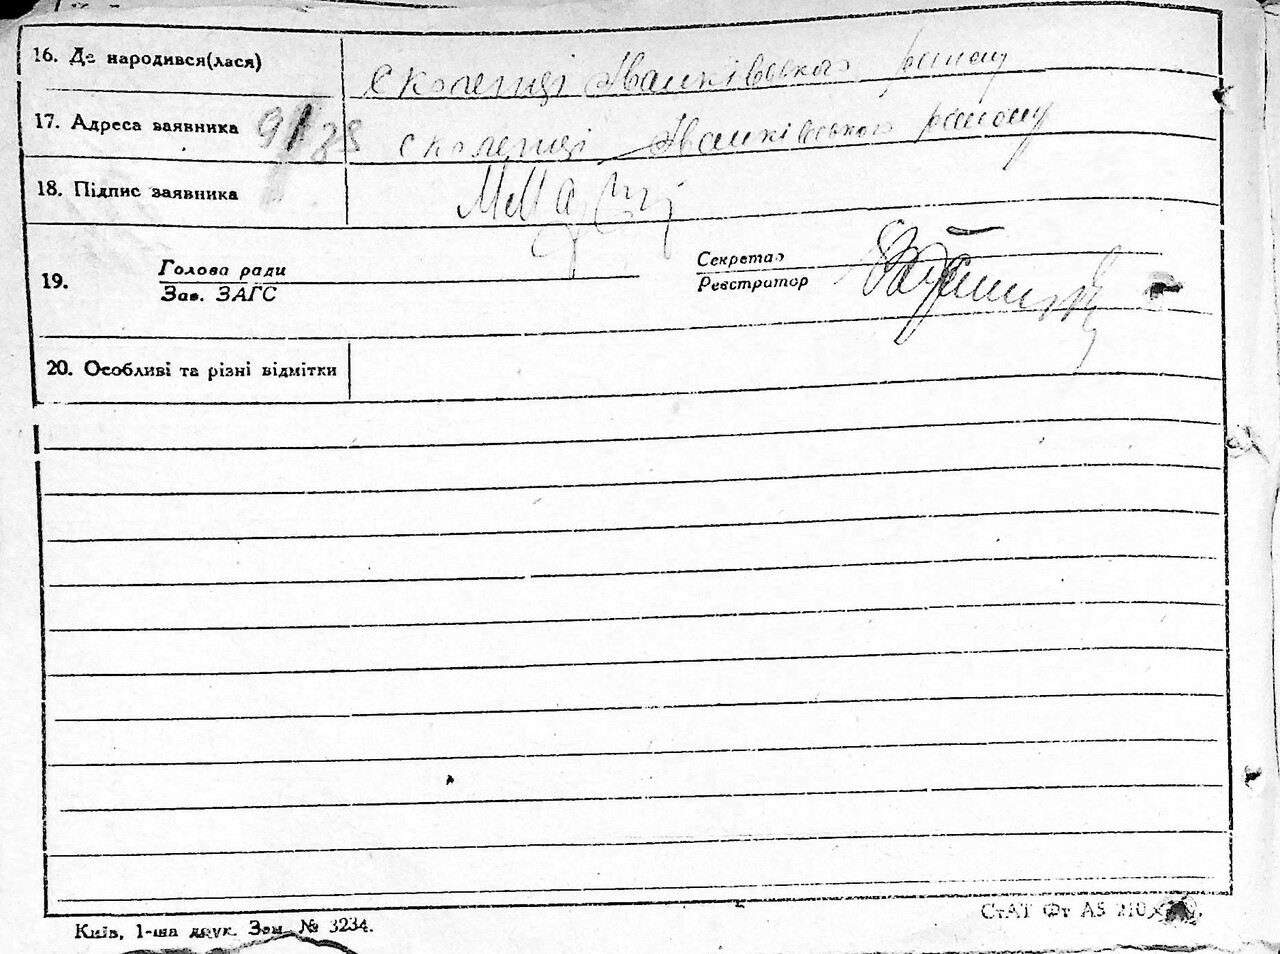 16. Де народився(лася) с Коленці Іванківського району
17. Адреса заявника с Коленці Іванківського району
18. Підпис заявника
19. Голова ради Секретар
Зав. ЗАГС Реєстратор
20. Особливі та різні відмітки
Київ, 1-ша друк. Зам № 3234.
СтАТ Фт А5 210